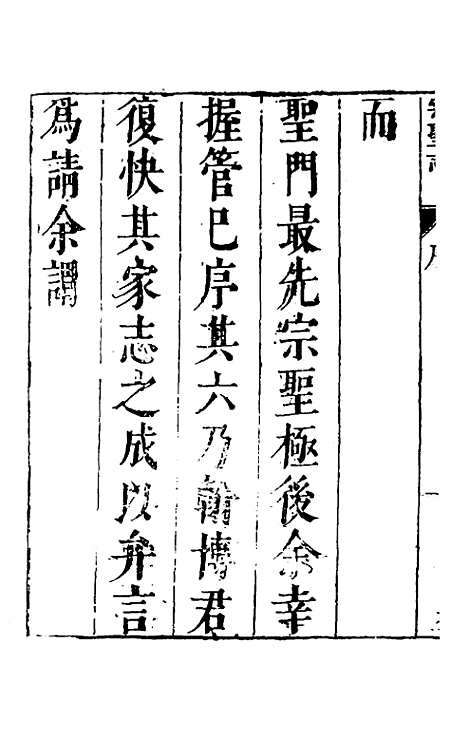 而
聖門最先宗聖極後余幸
握管巳序其六乃翰博君
復快其家志之成以弁言
為請余謂